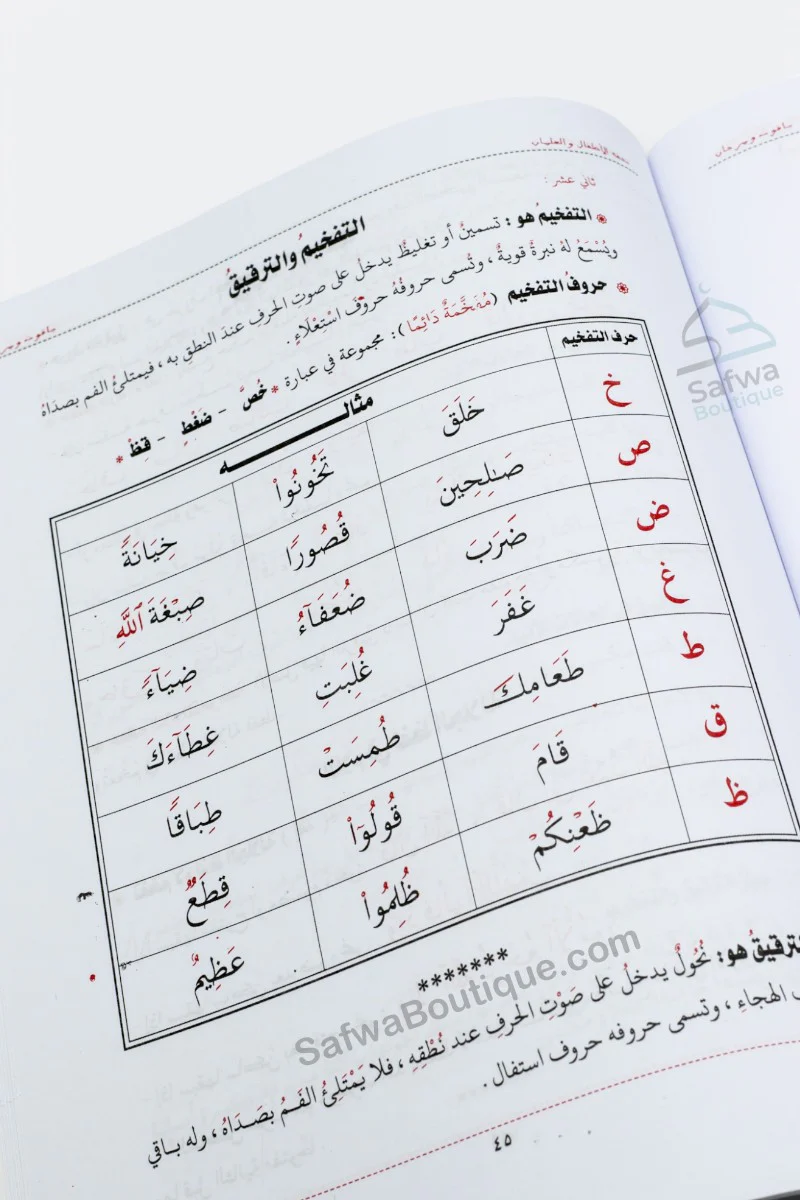 تحفة الأطفال والغلمان
ثاني عشر :
التفخيمُ والترقيقُ
* التفخيمُ هو : تسمينٌ أو تغليظٌ يدخلُ على صوتِ الحرفِ عندَ النطقِ به ، فيمتلئُ الفم بصداهُ
وتُسْمَعُ لهُ نبرةٌ قويةٌ ، وتُسمى حروفُهُ حروفَ اسْتِعْلَاءٍ.
* حروفُ التفخيم (مُفَخَّمَةٌ دَائِمًا): مجموعة في عبارة * خُصَّ - ضَغْطٍ - قِظْ *
حرف التفخيم مثالـــه
خ خَلَقَ تَخُونُوا۟ خِيَانَةً
ص صَـٰلِحِينَ قُصُورًا صِبْغَةَ ٱللَّهِ
ض ضَرَبَ ضُعَفَآءُ ضِيَآءً
غ غَفَرَ غُلِبَتِ غِطَآءَكَ
ط طَعَامِكَ طُمِسَتْ طِبَاقًا
ق قَامَ قُولُوٓا۟ قِطَعٌ
ظ ظَعْنِكُمْ ظُلِمُوا۟ عَظِيمٌ
*******
الترقيقُ هو: نُحُولٌ يدخلُ على صَوْتِ الحرفِ عند نُطْقِهِ ، فلا يَمْتَلِئُ الفَمُ بصَدَاهُ ، وله باقي
الهجاءِ ، وتسمى حروفه حروف استفال .
٤٥
Safwa
Boutique
SafwaBoutique.com